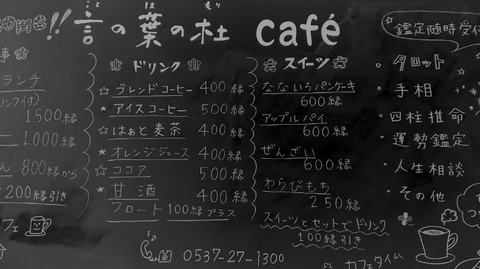 !! 言の葉の杜 café
こと は もり
事
ランチ
ンク付)
1,500縁
1,000縁
800縁から
200縁引き
フェ
ドリンク
☆ブレンドコーヒー 400縁
★アイスコーヒー 500縁
☆はぁと麦茶 400縁
★オレンジジュース 400縁
☆ココア 500縁
★甘酒 400縁
フロート100縁プラス
0537-27-1300
スイーツ
なないろパンケーキ
600縁
アップルパイ
600縁
ぜんざい
600縁
わらびもち
250縁
スイーツとセットでドリンク
100縁引き
カフェタイム
鑑定随時受付
・タロット
・手相
・四柱推命
・運勢鑑定
・人生相談
・その他